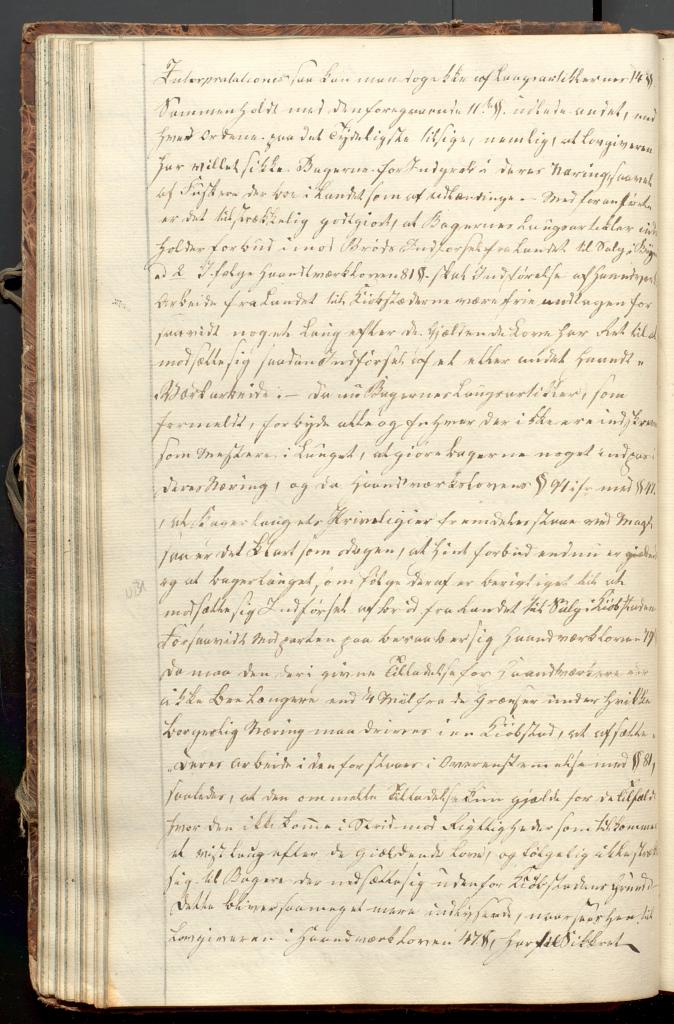 Interpretationes saa kan man dog ikke af Laugsartiklernes 14 §
Sammenholdt med den foregaaende 11te §. udlede andet, end
hvad Ordene paa det Tydeligste tilsige, nemlig, at Lovgiveren
har villet sikkre Bagerne for Indgreb i deres Næring, saavel
af Fuskere der boe i Landet som af Udlændinge. – Med foranførte
er det tilstrækkelig godtgiort, at Bagernes Laugsartikler inde
holder forbud imod Brøds Indførsel fra Landet til Salg i Bÿen
ad 2 I følge Haandværksloven 81 §. skal Indførelse af Haandværks
Arbeide fra Landet til Kiøbstæderne være frie undtagen for
saavidt noget Laug efter de Gjældende Love har Ret til at
modsætte sig saadan Indførsel af et eller andet Haandt =
Værksarbeide. – Da nu Bagernes Laugsartikler, som
formeldt, forbyde alle og Enhver der ikke ere indskrevne
som Mestere i Lauget, at giøre Bagerne noget Indpas i
deres Næring, og da Haandværkslovens § 91 jfr med § 47
, at Bagerlaugets Privilegier fremdeles staae ved Magt
saa er det klart som dagen, at hiint forbud endnu er gieldende
og at Bagerlauget, som følge deraf er berigtiget til at
modsætte sig Indførsel af brød fra Landet til Salg i Kiøbstaden
Forsaavidt Modparten paa beraaber sig Haandværksloven 79
da maa den deri givne Tilladelse for Haandværkere der
ikke boe Længere end ¼ Miil fra de Grændser inden hvilke
borgerlig Næring maa drives i en Kiøbstad, at afsætte
deres Arbeide i den forstaaes i Overensstemmelse med § 81,
saaledes, at den ommelte Tilladelse kun gjælde for de Tilfælde
hvor den ikke komme i Strid med Rigttigheder som tilkommer
et vist Laug efter de gieldende Love, og følgelig ikke strække
sig til Bagere der nedsætte sig udenfor Kiøbstadens Grund
Dette bliver saameget mere indlysende, naar sees hen til
Lovgiveren i Haandværksloven 47 §, har tilsikkret